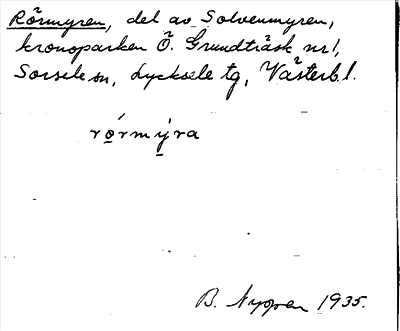 Rörmyren, del av Solvenmyren,
kronoparken Ö. Grundträsk nr 1,
Sorsele sn, Lycksele tg, Västerb. l.
rö́rmýra
B. Nygren 1935.